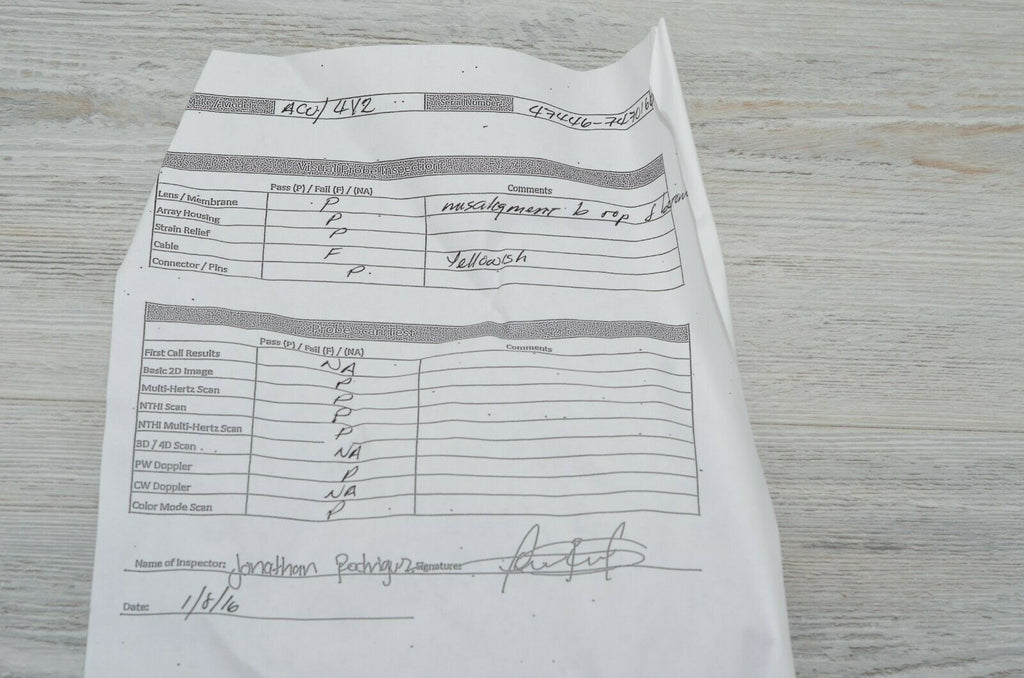 Make / Model ACU/ 4V2 Serial Number 47446-7470166
Visual Probe Inspection
Pass (P) / Fail (F) / (NA) Comments
Lens / Membrane P misaligment
Array Housing P
Strain Relief P
Cable F Yellowish
Connector / Pins P
Probe Scan Test
Pass (P) / Fail (F) / (NA) Comments
First Call Results NA
Basic 2D Image P
Multi-Hertz Scan P
NTHI Scan P
NTHI Multi-Hertz Scan P
3D / 4D Scan NA
PW Doppler P
CW Doppler NA
Color Mode Scan P
Name of Inspector: Jonathan Rodriguez Signaturer
Date: 1/8/16